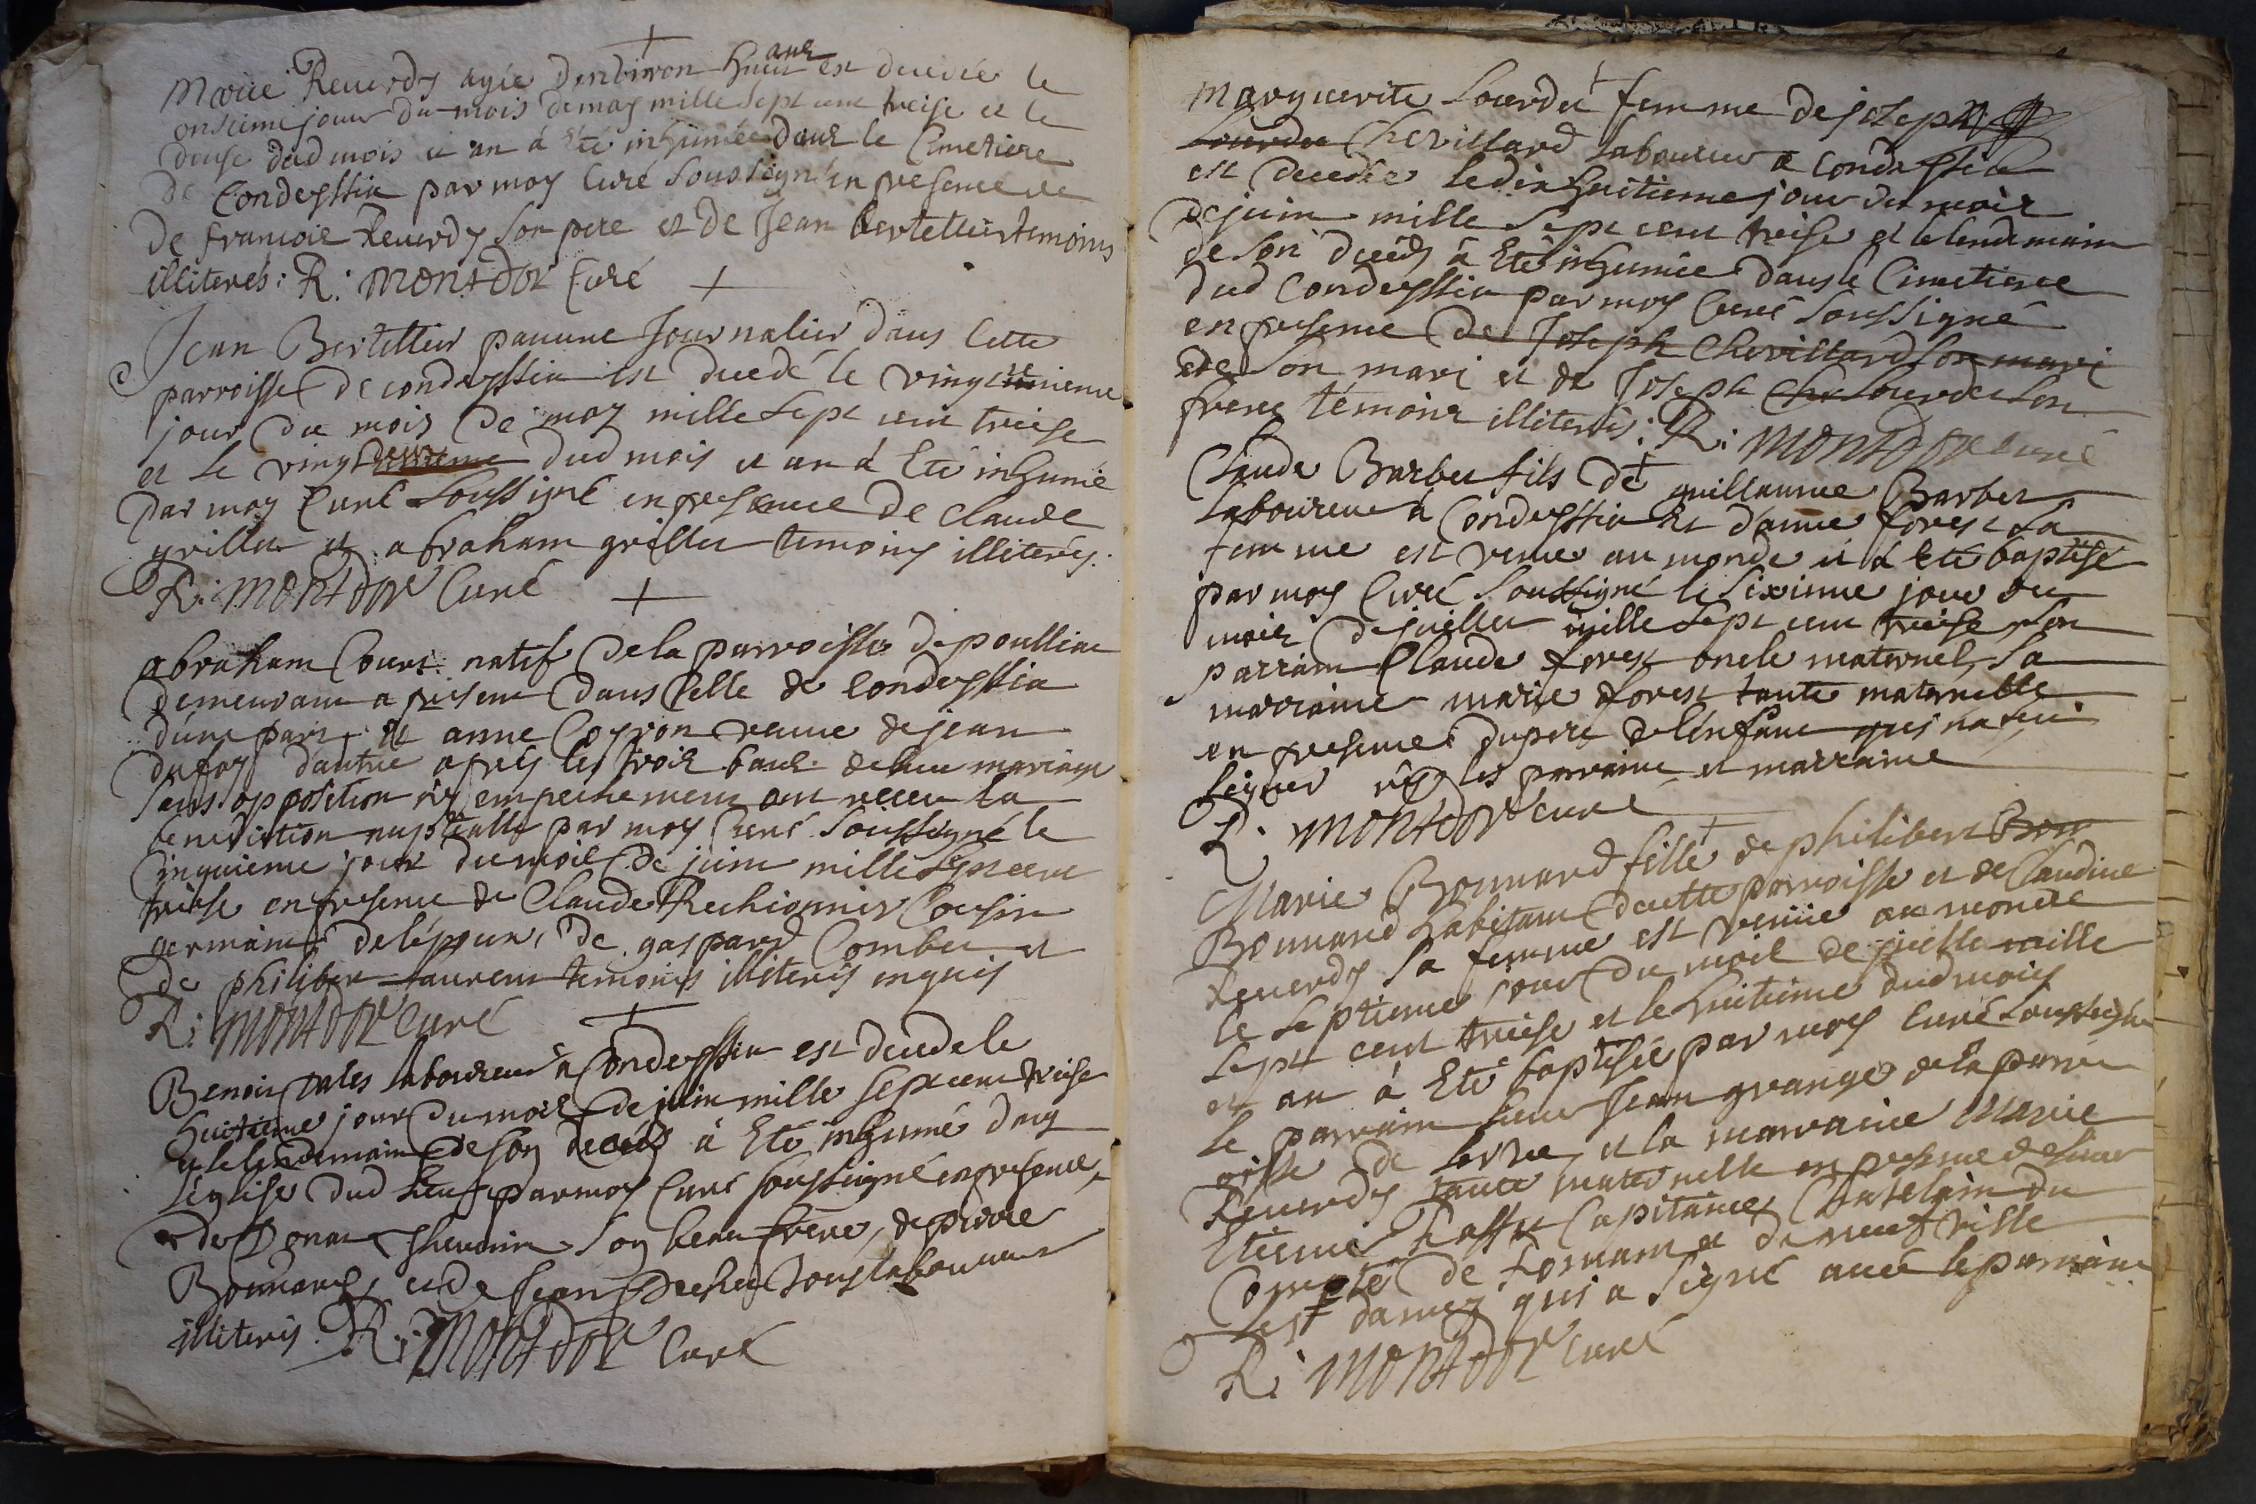 Marie Reuerdy agée denbiron huict ans est decedée le
onzieme jour du mois de may mille sept cent treise et le
douse dud mois et an à eté inhumée dans le Cimetiere
de Condeyssia par moy Curé soussigné en presence de
de francois Reuerdy son pere et de Jean Bertellier temoins
illiterés: R: MONTDOR Curé
Jean Bertellier pauure Journalier dans cette
parroisse de condeyssia est decedé le vingt
jour du mois de may mille sept cent treise
et le vingt deux dud mois et an à eté inhumé
par moy Curé soussigné en presence de claude
grillet et abraham grillet temoins illiterés.
R: MONTDOR Curé
abraham natif de la parroisse de poulliac
demeurant a present dans celle de Condeyssia
d'une part, et anne veuue de jean
dufay d'autre apres les trois bans de leur mariage
sans opposition ny empechement ont receu la
benediction nuptialle par moy Curé soussigné le
cinquieme jour du mois de juin mille sept cent
treise en presence de Claude Rechionnier Cousin
germain de l'epoux, de gaspard Combet et
de philibert laurent temoins illiterés enquis
R: MONTDOR Curé
Benoit laboureur a Condeyssia est decedé le
huitieme jour du mois de juin mille sept cent treise
et le lendemain de son decés à eté inhumé dans
l'eglise dud lieu par moy Curé soussigné en presence
de Donat son beau frere, de pierre
Bonnard, et de Jean tous laboureurs
illiterés. R: MONTDOR Curé
Marguerite Lourdet femme de joseph
Lourdet Chevillard laboureur a Condeyssia
est decedée le dix huitieme jour du mois
de juin mille sept cent treise et le lendemain
de son decés à eté inhumée dans le Cimetiere
dud Condeyssia par moy Curé soussigné
en presence de Joseph Chevillard son mari
de son mari et de Joseph Lourdet son
frere temoins illiterés: R: MONTDOR Curé
Claude Barbet fils de guillaume Barbet
laboureur à Condeyssia et d'anne forest sa
femme est venu au monde et à eté baptisé
par moy Curé soussigné le sixieme jour du
mois de juillet mille sept cent treise son
parrain Claude forest oncle maternel, sa
marraine marie forest tante maternelle
en presence du pere de l'enfant qui na sceu
signer ny les parrain et marraine
R: MONTDOR Curé
Marie Bonnard fille de philibert Bon
Bonnard habitant de cette parroisse et de Claudine
Reuerdy sa femme est venüe au monde
le septieme jour du mois de juillet mille
sept cent treise et le huitieme dud mois
et an à eté baptisée par moy Curé soussigné
le parrain sieur Jean grange de la parro
oisse de et la marraine Marie
Reuerdy tante maternelle en presence de sieur
Etienne Capitaine Chatelain du
Comté de et de neufville
les dames qui a signé auec le parrain
R: MONTDOR Curé